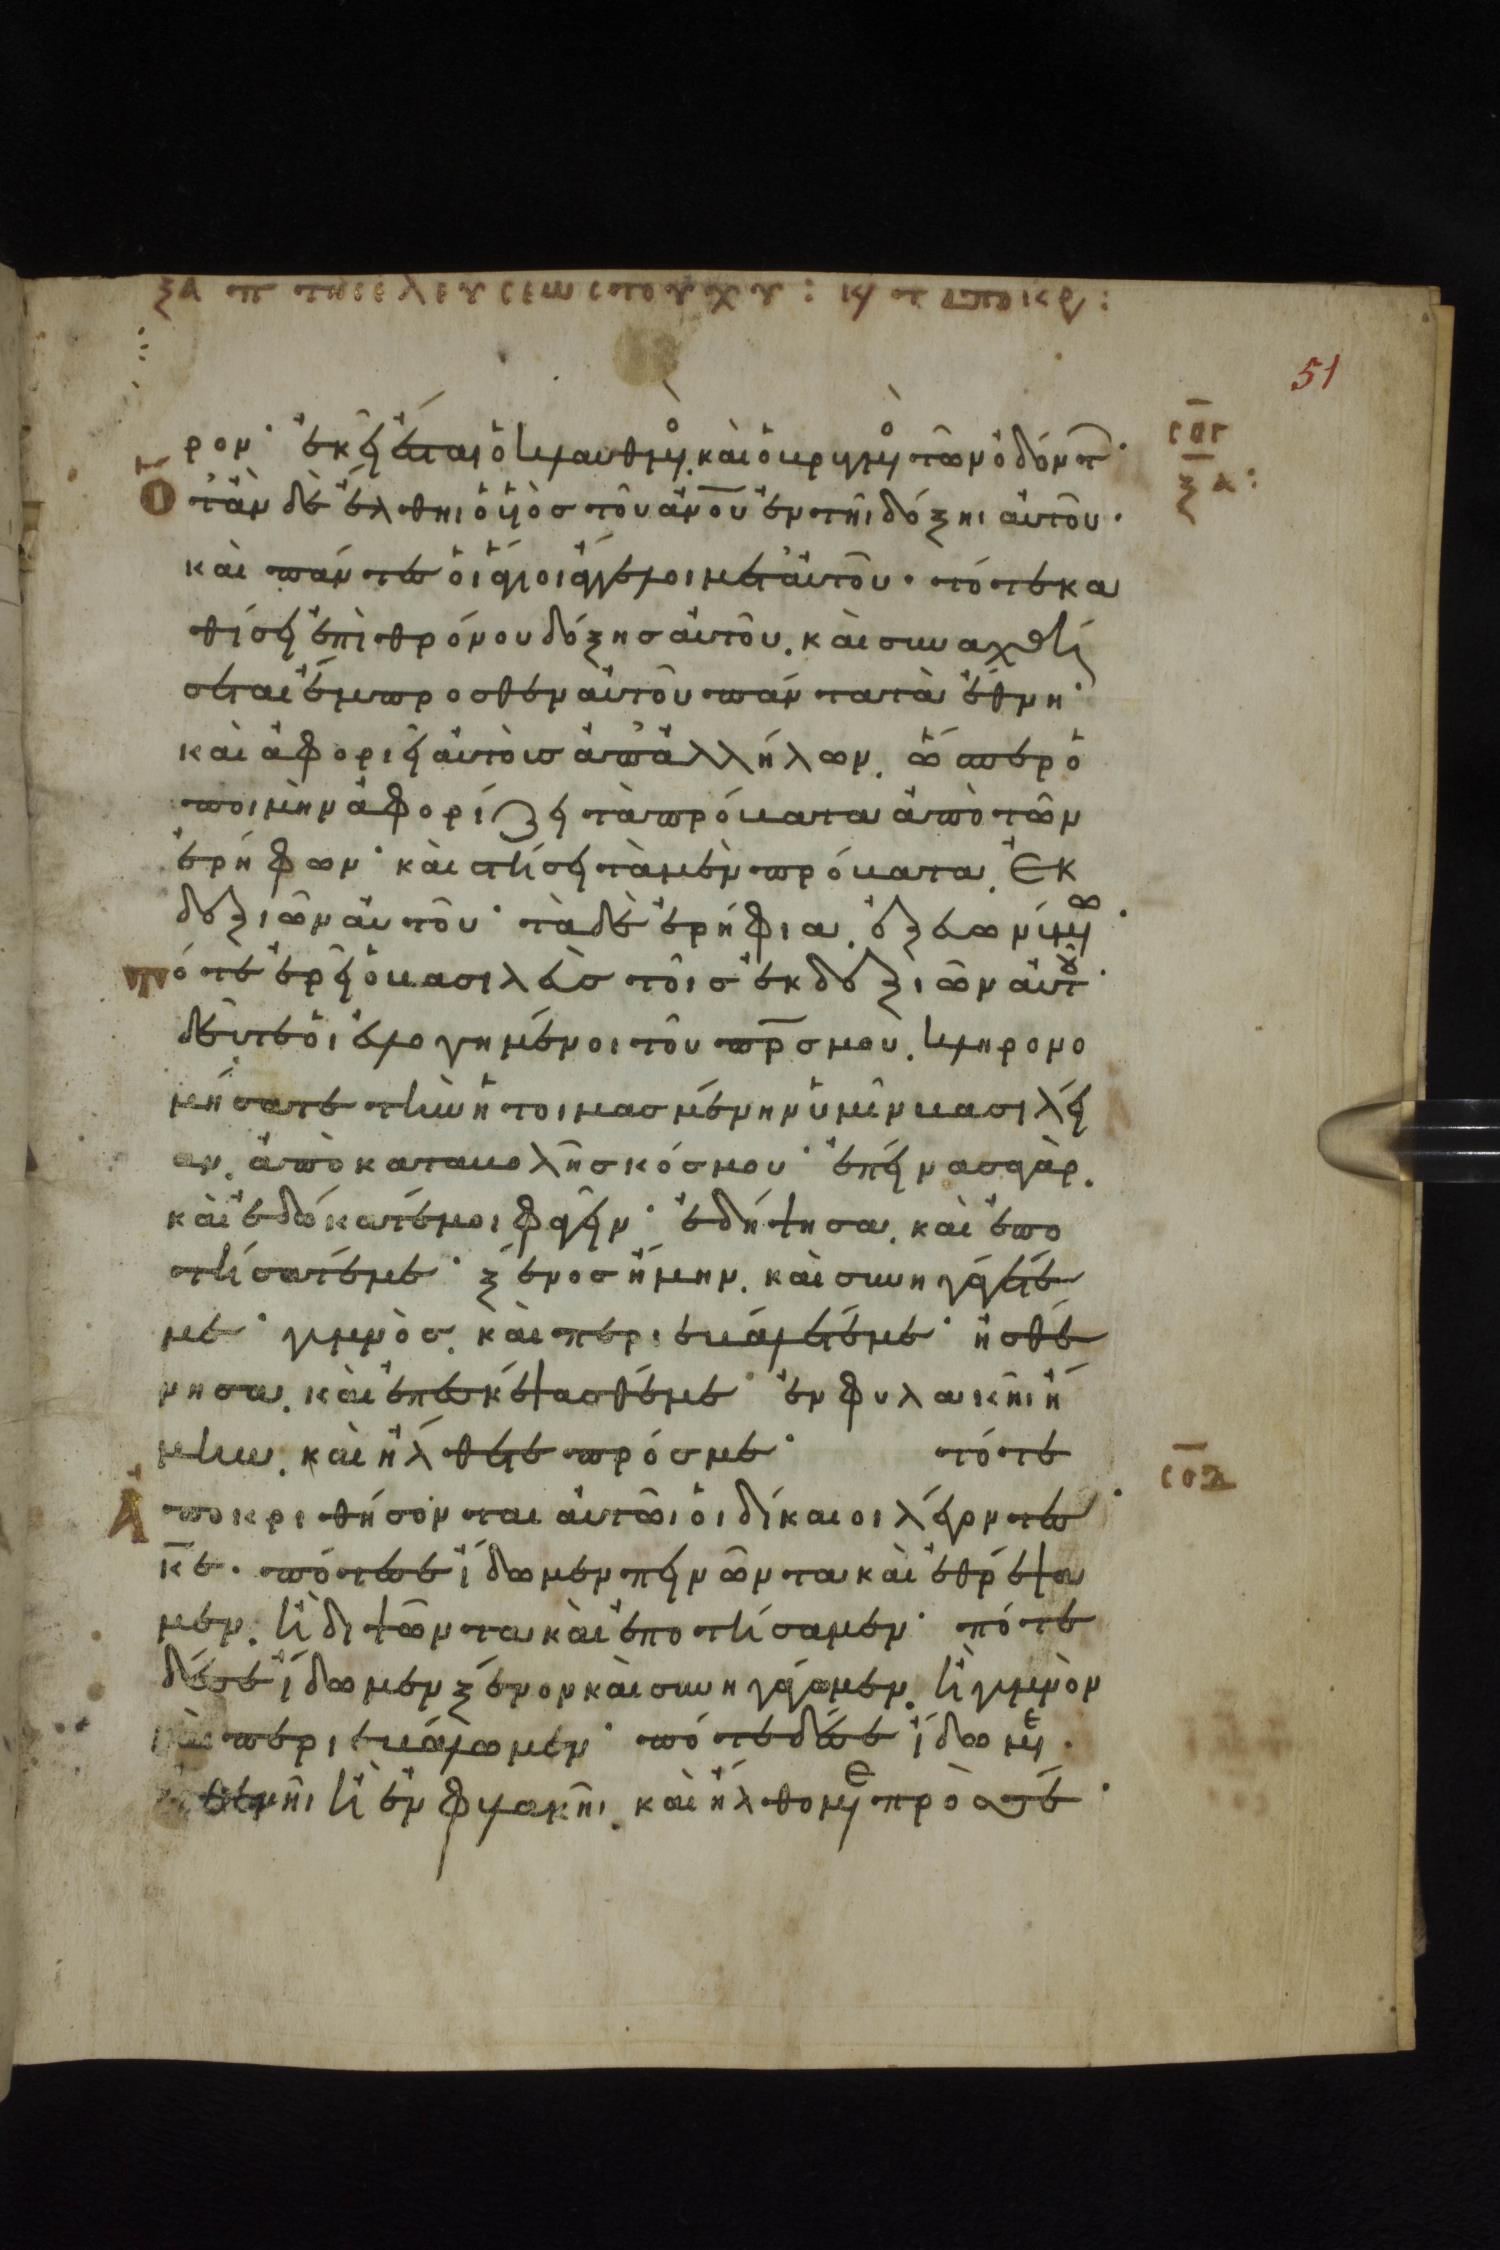 ξα π της ελευσεως του χυ : κ τ αποκρ :
51
ρον· ἐκεῖ ἔσται ὁ κλαυθμὸ καὶ ὁ βρυγμὸ τῶν ὀδόντ·
σογ
ξα:
Ὁτὰν δὲ ἔλθηι ὁ υἱὸσ τοῦ ἀν̅ου ἐν τῆι δόξηι αὐτοῦ·
καὶ πάντεσ οἱ ἅγιοι ἄγγελοι μετ' αὐτοῦ· τότε κα
θίσει ἐπὶ θρόνου δόξησ αὐτοῦ. καὶ συναχθή
σεται ἔμπροσθεν αὐτοῦ πάντα τὰ ἔθνη·
καὶ ἀφοριεῖ αὐτοὺσ ἀπ' ἀλλήλων. ὥσπερ ὁ
ποιμὴν ἀφορίζει τὰ πρόβατα ἀπὸ τῶν
ἐρήφων· καὶ στήσει τὰ μὲν πρόβατα. ἐκ
δεξιῶν αὐτοῦ· τὰ δὲ ἐρήφια. ἐξ εὐωνύμω·
Τότε ἐρεῖ ὁ βασιλεὺσ τοῖσ ἐκ δεξιῶν αὐτοῦ·
δεῦτε οἱ εὐλογημένοι τοῦ πρ̅σ μου. κληρονο
μήσατε τὴν ἡτοιμασμένην ὑμῖν βασιλεί
αν. ἀπὸ καταβολῆσ κόσμου· ἐπείνασα γὰρ.
καὶ ἐδώκατέ μοι φαγεῖν· ἐδήψησα. καὶ ἐπο
τήσατέ με· ξένοσ ἤμην. καὶ συνηγάγετέ
με· γυμνὸσ. καὶ περιεβάλετέ με· ἠσθέ
νησα. καὶ ἐπεσκέψασθέ με· ἐν φυλακῆι ἤ
μην. καὶ ἤλθετε πρόσ με· τότε
Ἀποκριθήσονται αὐτῶι οἱ δίκαιοι λέγοντεσ·
σοδ
κ̅ε· πότε σε ἴδωμεν πεινῶντα καὶ ἐθρέψα
μεν. ἢ διψῶντα καὶ ἐποτήσαμεν· πότε
δέ σε ἴδωμεν ξένον καὶ συνηγάγωμεν. ἢ γυμνὸν
καὶ περιεβάλωμεν· πότε δέ σε ἴδωμε·
ἀσθενῆι ἢ ἐν φυλακῆι. καὶ ἤλθομε πρὸσ σέ·